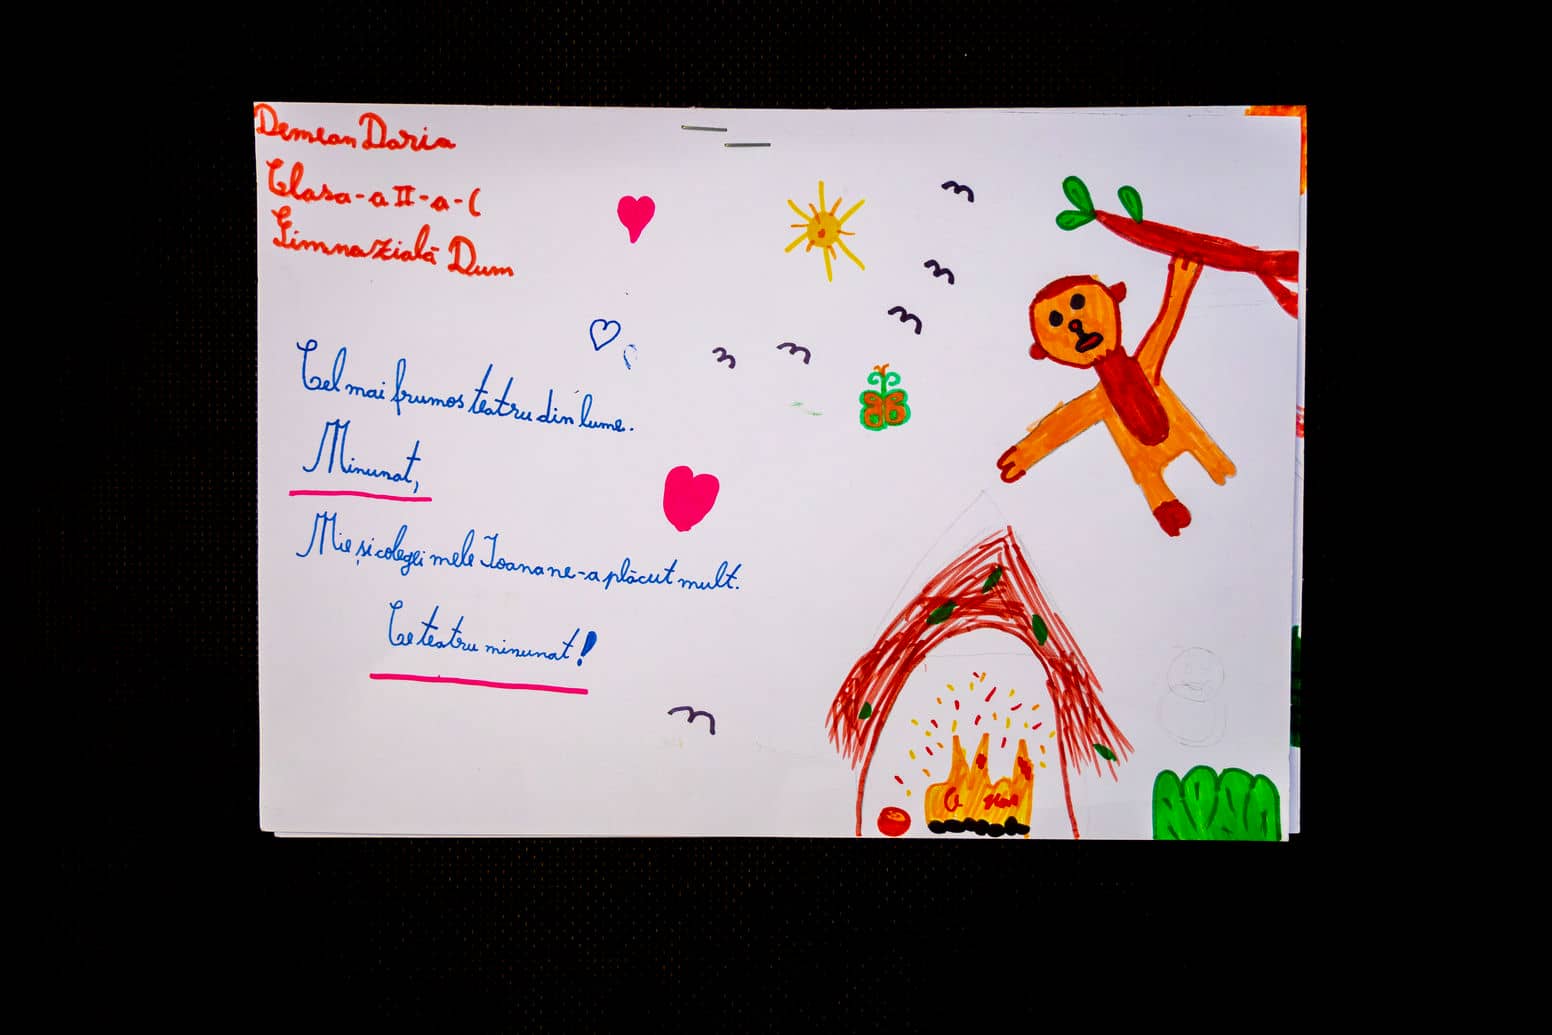 Demean Daria
Clasa-a II-a-C
Gimnazială Dum
Cel mai frumos teatru din lume.
Minunat,
Mie și colegei mele Ioana ne-a plăcut mult.
Ce teatru minunat!